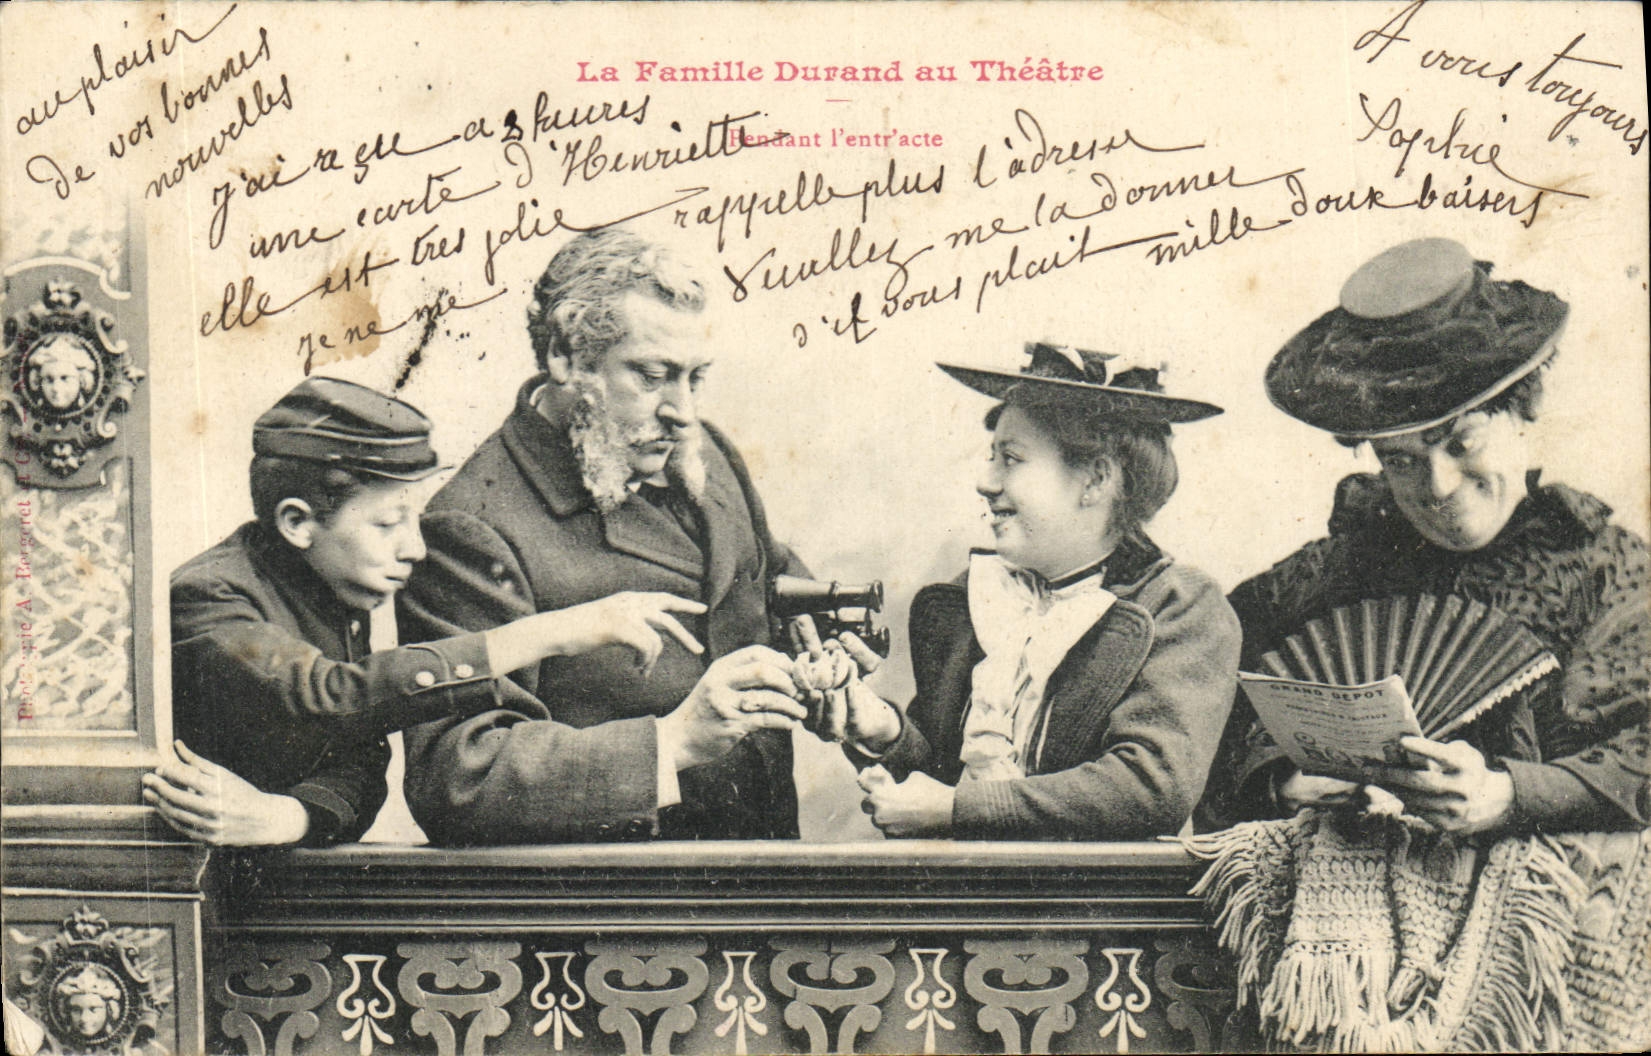 au plaisir
de vos bonnes
nouvelles
La Famille Durand au Théâtre
Pendant l'entr'acte
j'ai reçu a 2 heures
une carte d'Henriette
elle est tres jolie
je ne me
rappelle plus l'adresse
Veuillez me la donner
s'il vous plait mille doux baisers
A vous toujours
Sophie
Phototypie A. Bergeret &
GRAND DEPOT